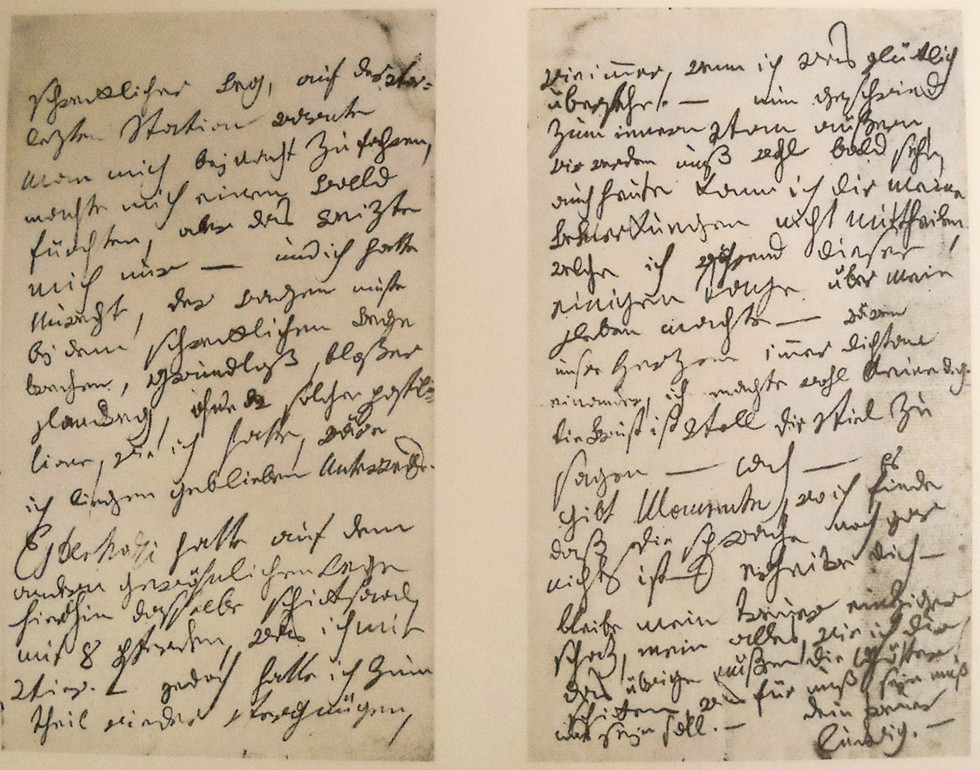 schrecklicher Weg, auf der vor=
lezten Station warnte
man mich bey nacht zu fahren,
machte mich einen Wald
fürchten, aber das Reizte
mich nur — und ich hatte
Unrecht, der Wagen muste
bey dem schrecklichen Wege
brechen, grundloß, bloßer
Landweg, ohne solche Postil=
lione, wie ich hatte, wäre
ich liegen geblieben Unterwegs.
Esterhazi hatte auf dem
andern gewöhnlichen Wege
hierhin dasselbe schicksaal,
mit 8 Pferden, was ich mit
vier. — jedoch hatte ich zum
theil wieder Vergnügen,
wie immer, wenn ich was glücklich
überstehe. — nun geschwind
zum innern vom aüßern,
wir werden unß wohl bald sehn,
auch heute kann ich dir meine
Bemerkungen nicht mittheilen,
welche ich während dieser
einigen Tage über mein
Leben machte — wären
unsre Herzen immer dicht an
einander, ich machte wohl keine d.g.
die Brust ist voll dir viel zu
sagen — Ach — Es
gibt Momente, wo ich finde
daß die sprache noch gar
nichts ist — erheitre dich —
bleibe mein treuer einziger
schaz, mein alles, wie ich dir
das übrige müßen die Götter
schicken, was für unß seyn muß
und seyn soll. — dein treuer
ludwig. —